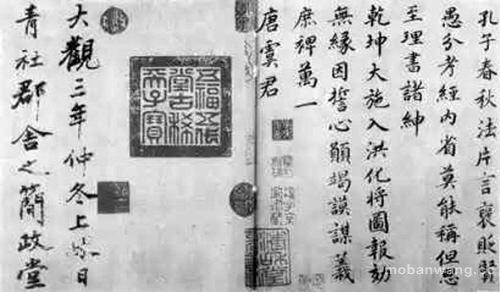 孔子春秋法片言褒貶賢
愚分考經内省莫能稱但恐
至理書諸紳
乾坤大施入洪化將圖報効
無緣因誓心願竭謨謀義
庶裨萬一
唐虞君
五福五代
堂古稀
天子寶
大觀三年仲冬上
日
青社郡舍之簡政堂
mobanwang.com